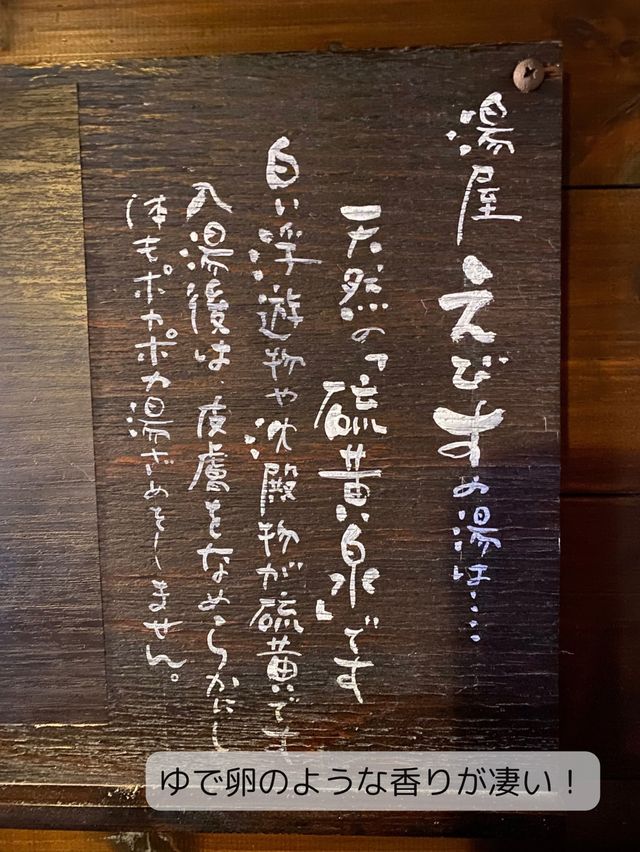 湯屋えびすの湯は‥‥
天然の「硫黄泉」です
白い浮遊物や沈殿物が硫黄です
入湯後は、皮膚をなめらかにし
体もポカポカ湯ざめをしません。
ゆで卵のような香りが凄い！